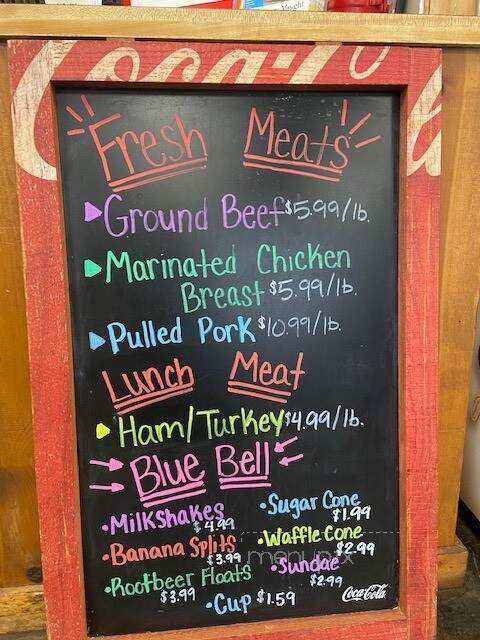 Coca-Cola
Fresh Meats
Ground Beef $5.99/lb.
Marinated Chicken
Breast $5.99/lb.
Pulled Pork $10.99/lb.
Lunch Meat
Ham/Turkey $4.99/lb.
Blue Bell
•Milkshakes $4.99
•Sugar Cone $1.99
•Banana Splits $3.99
•Waffle Cone $2.99
•Rootbeer Floats $3.99
•Sundae $2.99
•Cup $1.59
Coca-Cola
menupix